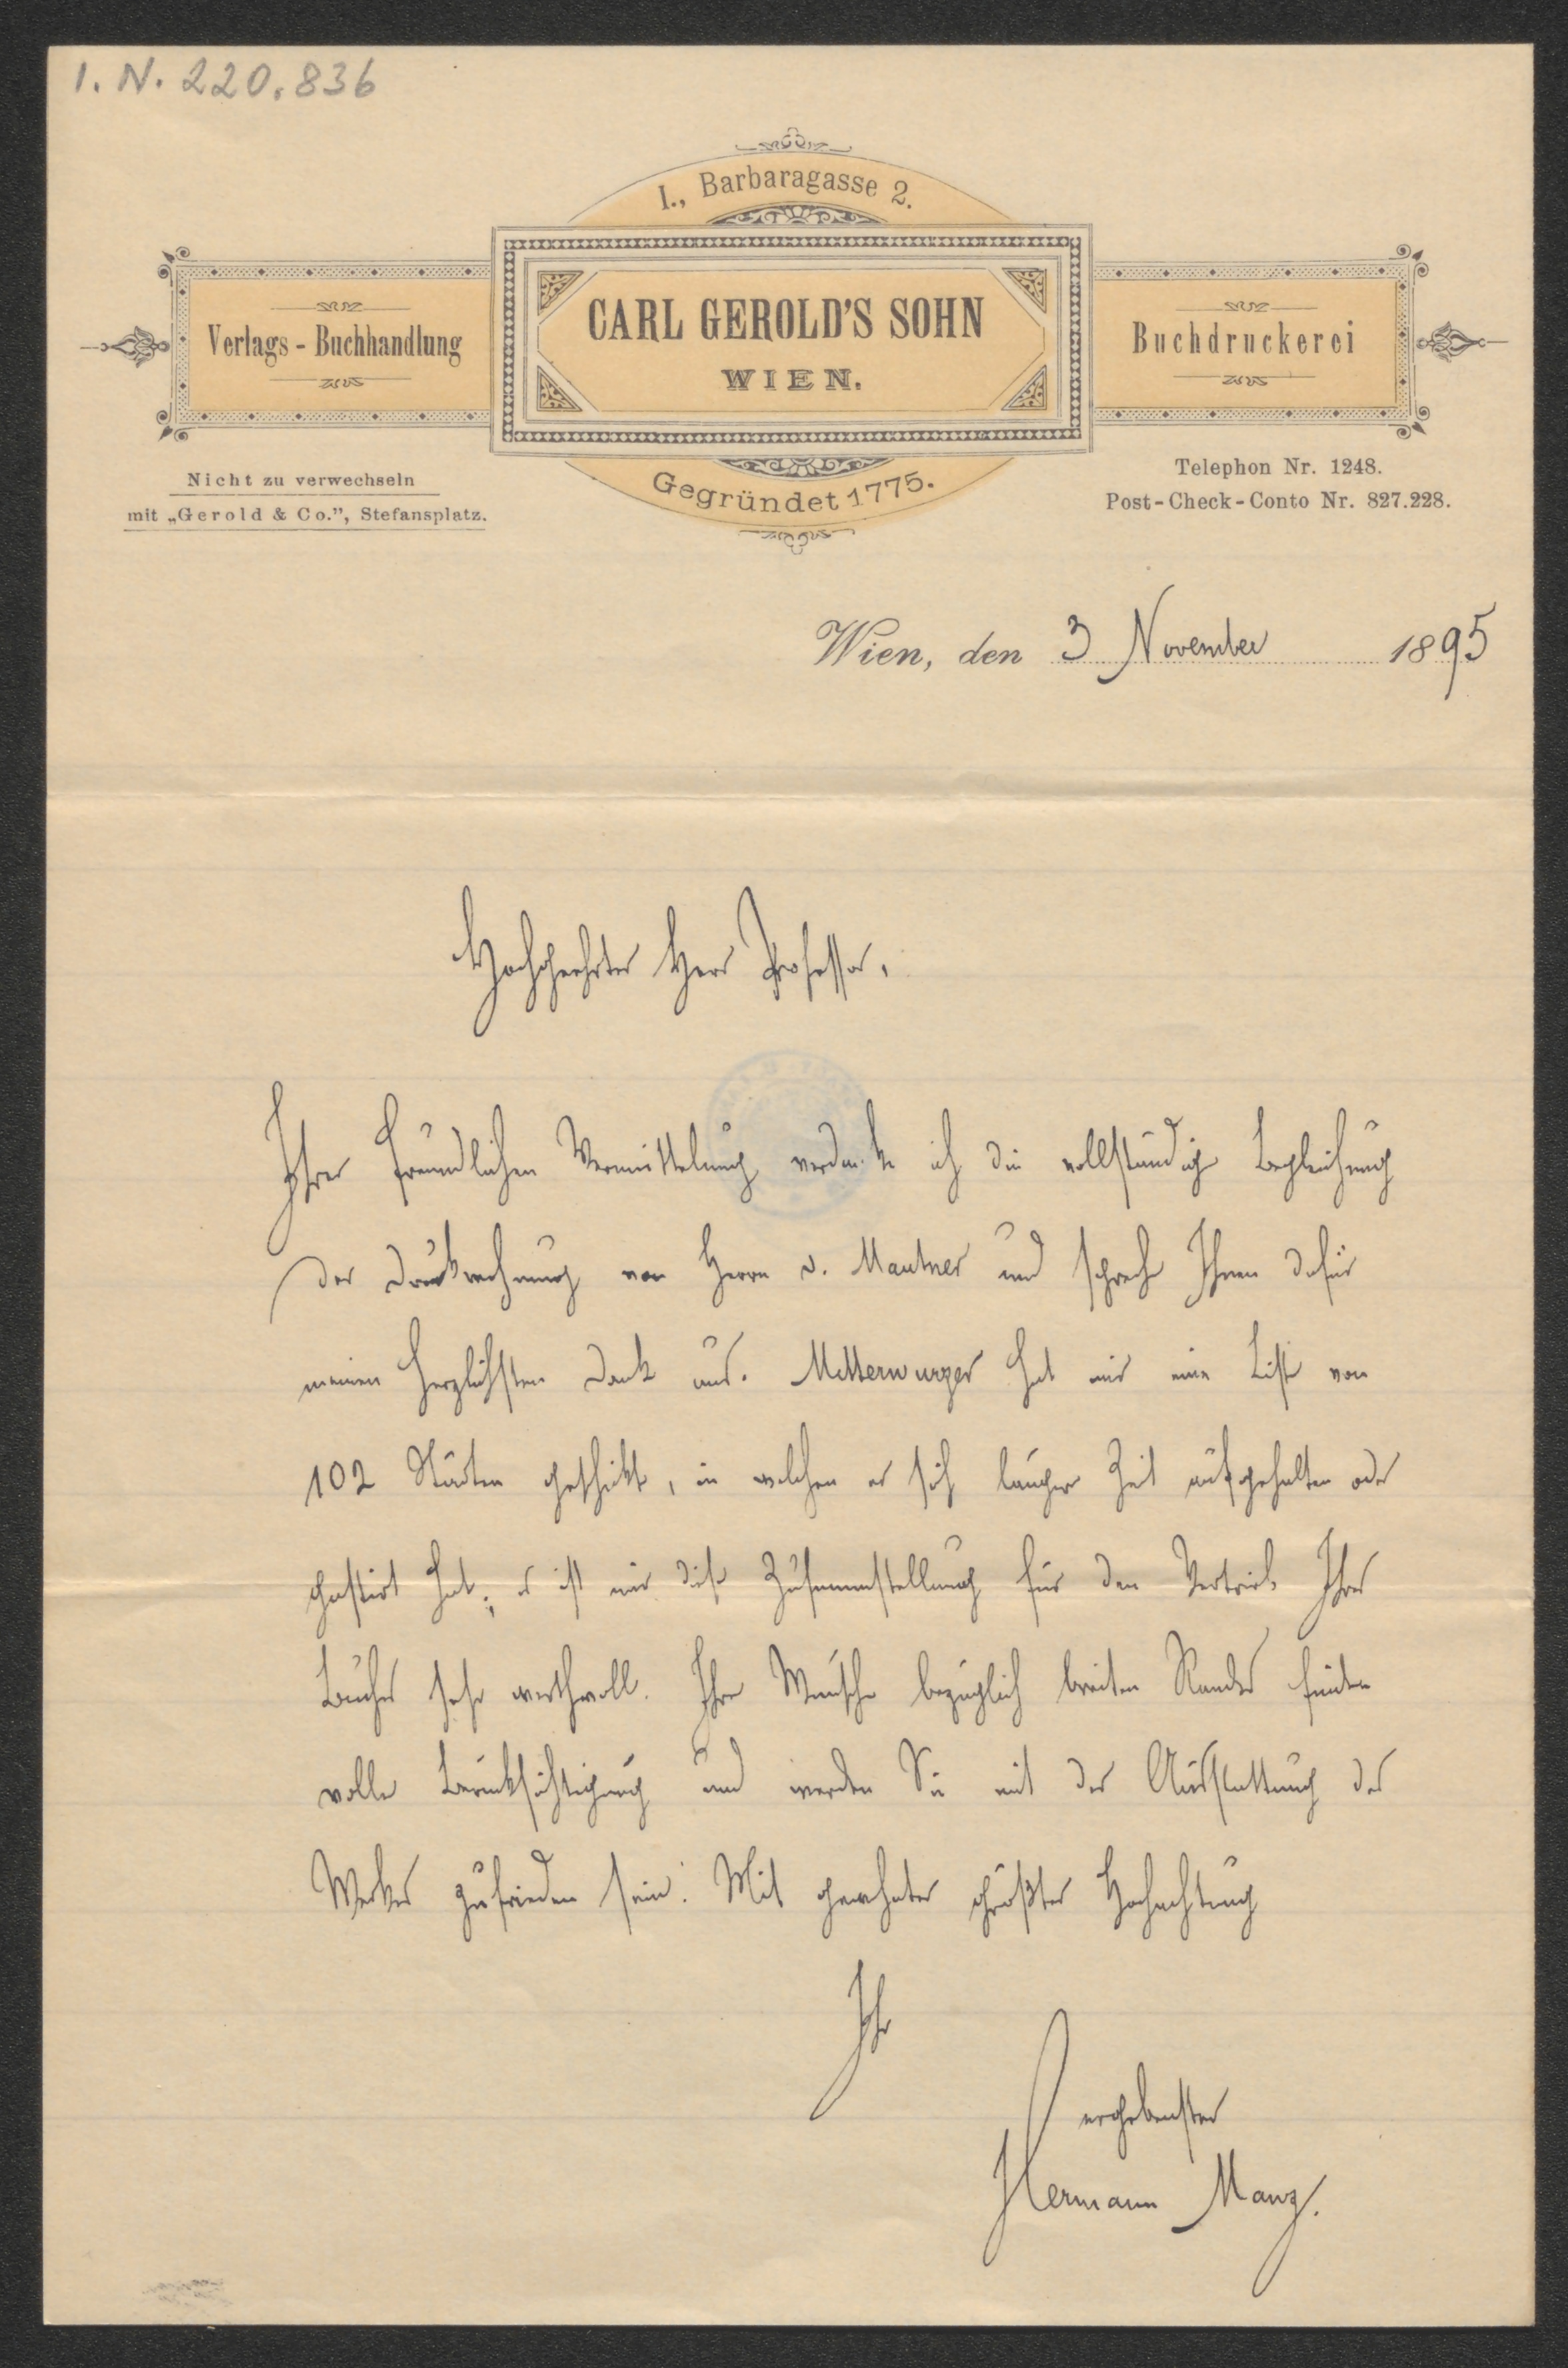 I. N. 220.836
I., Barbaragasse 2.
Verlags-Buchhandlung
CARL GEROLD'S SOHN
WIEN.
Buchdruckerei
Gegründet 1775.
Nicht zu verwechseln
mit „Gerold & Co.”, Stefansplatz.
Telephon Nr. 1248.
Post-Check-Conto Nr. 827.228.
Wien, den 3 November 1895
Hochgeehrter Herr Professor,
Ihrer freundlichen Vermittelung verdanke ich die vollständige Begleichung
der Druckrechnung von Herrn v. Mautner und spreche Ihnen dafür
meinen herzlichsten Dank aus. Mitterwurzer hat mir eine Liste von
102 Städten geschickt, in welchen er sich länger Zeit aufgehalten oder
gastirt hat; es ist mir diese Zusammenstellung für den Vertrieb Ihres
Buches sehr werthvoll. Ihre Wünsche bezüglich breiten Randes finden
volle Berücksichtigung und werden Sie mit der Ausstattung des
Werkes zufrieden sein. Mit gewohnter größter Hochachtung
Ihr
ergebenster
Hermann Manz.